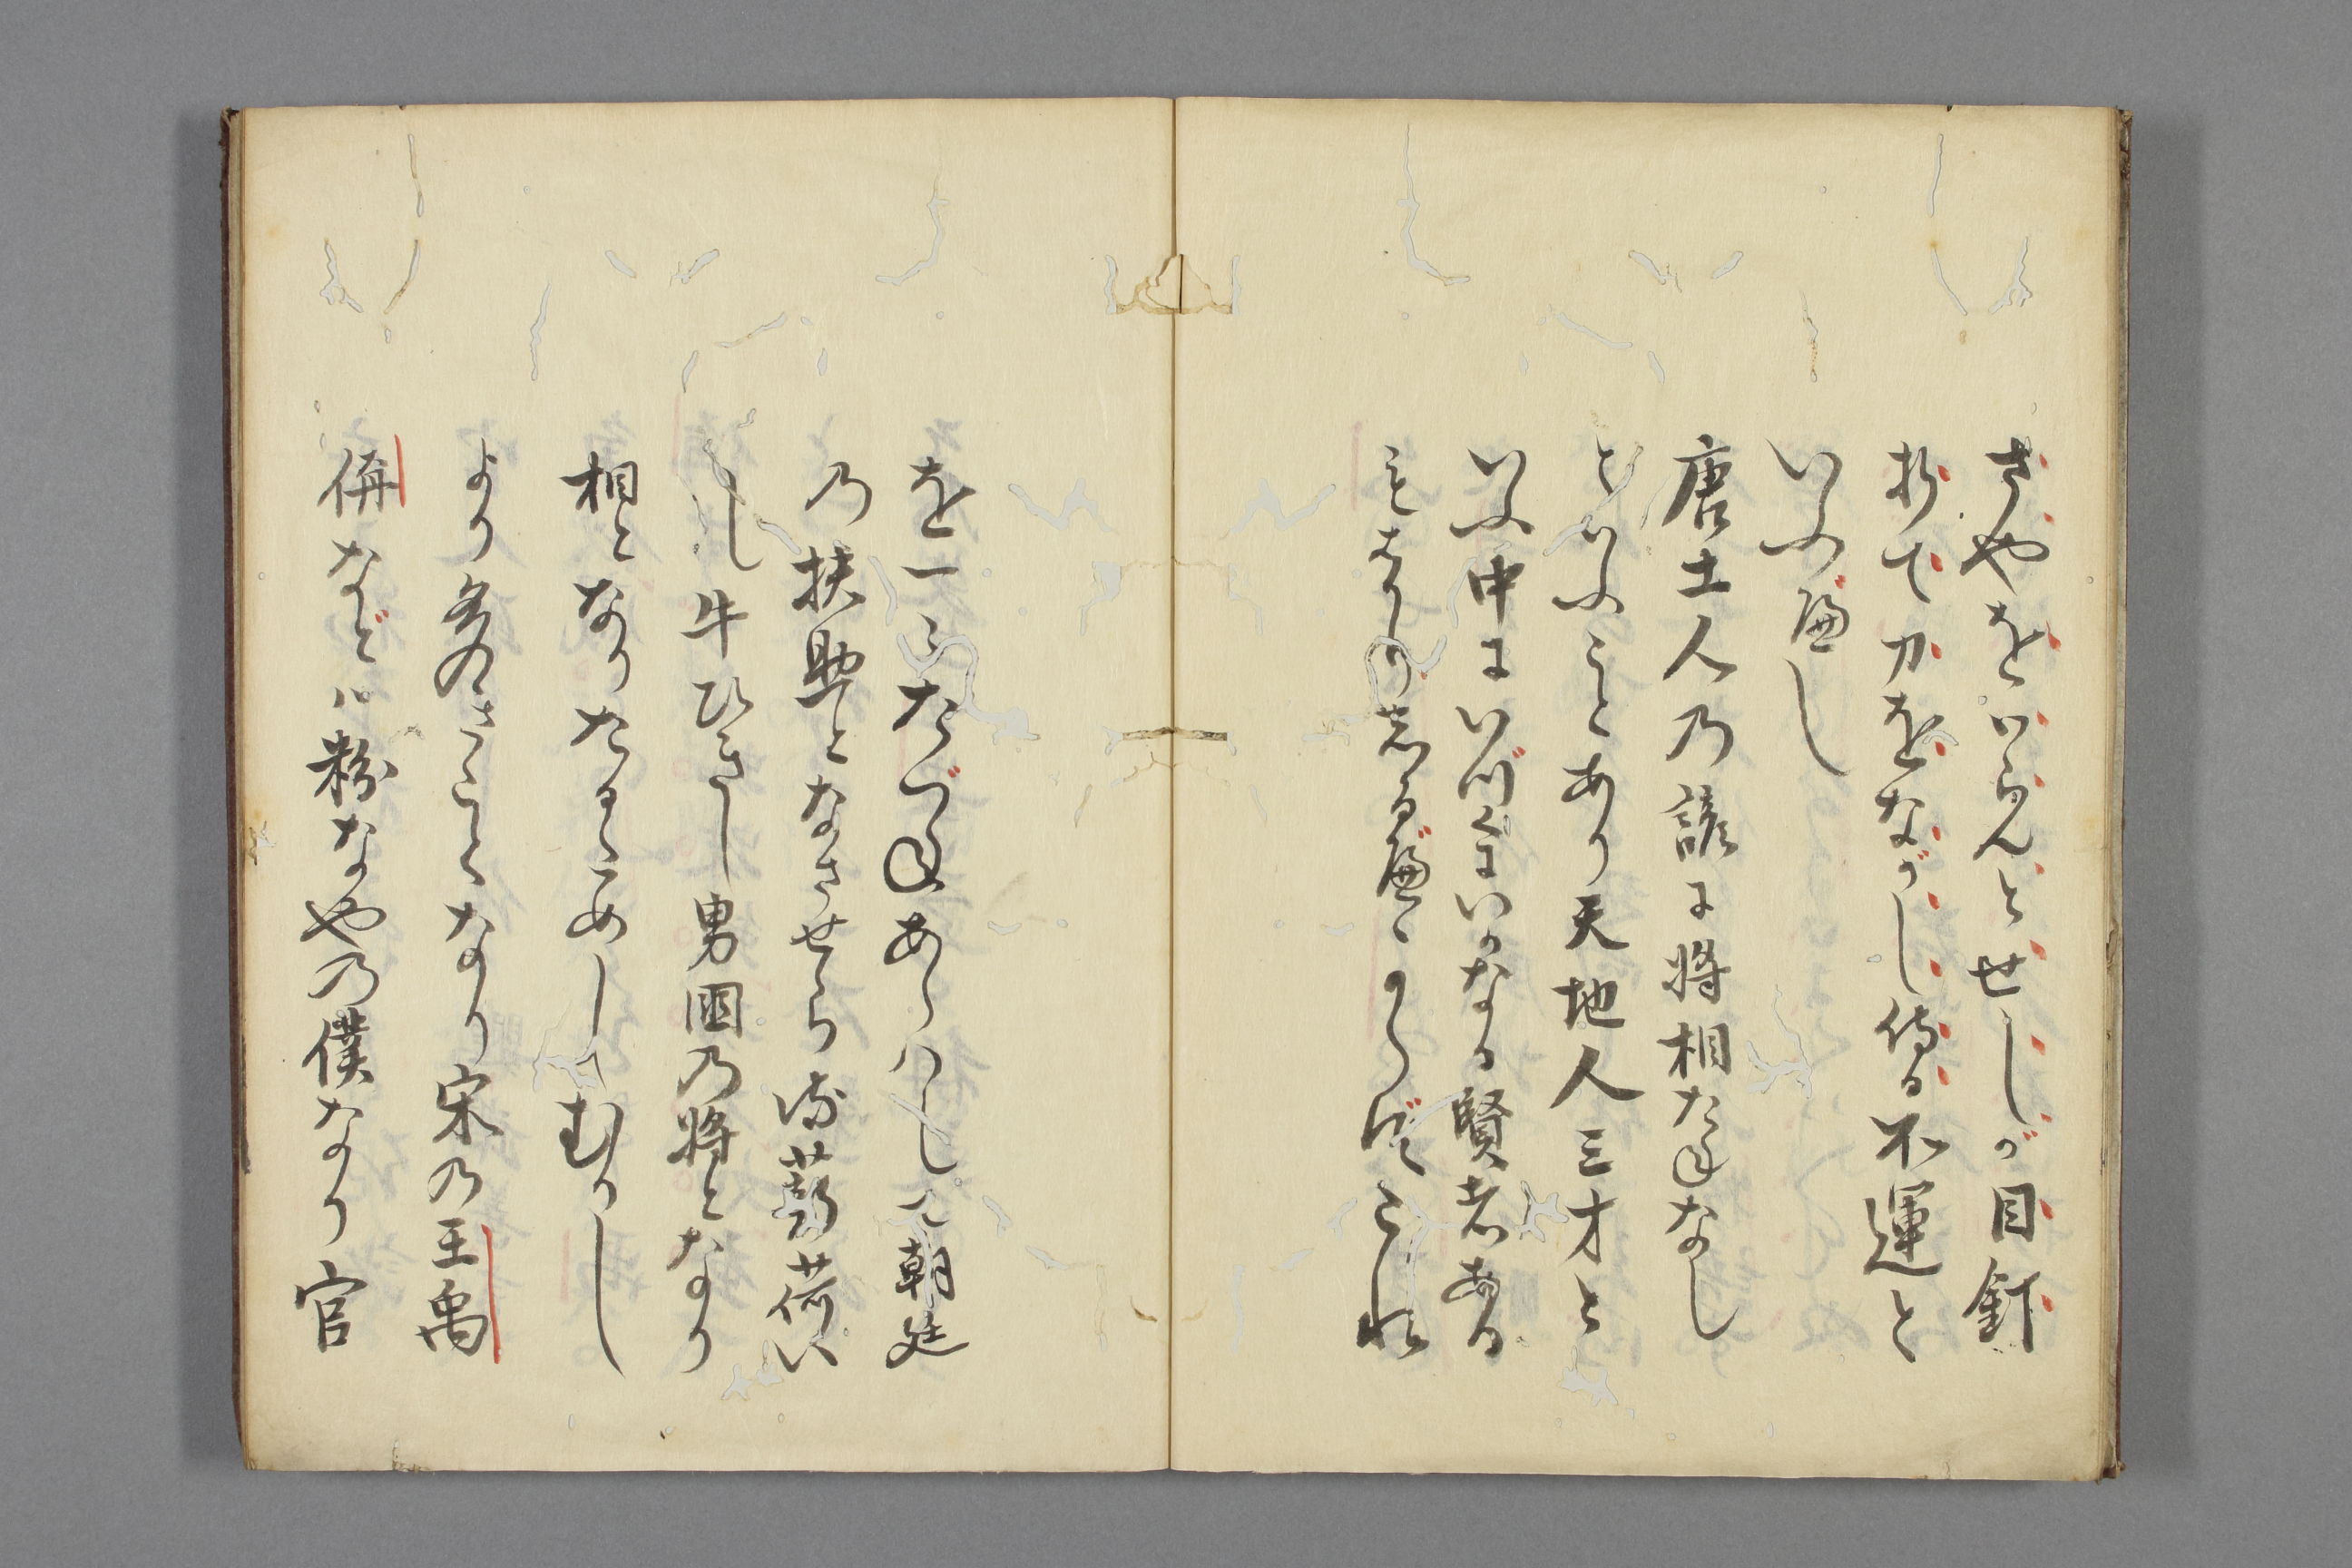 さやをいらんとせしが目釘
折て刀をながし侍る不運と
いふべし
唐土人乃諺に将相たねなし
といふことあり天地人三才と
いふ中にいづくにいかなる賢者ある
もはかり志るべからずこれ
を一にたづねあらはし朝廷
乃扶助となさせら
し牛ひきし男国乃将となり
相となりたるためしむかし
より多きことなり宋乃王禹
偁などは粉なや乃僕なり官